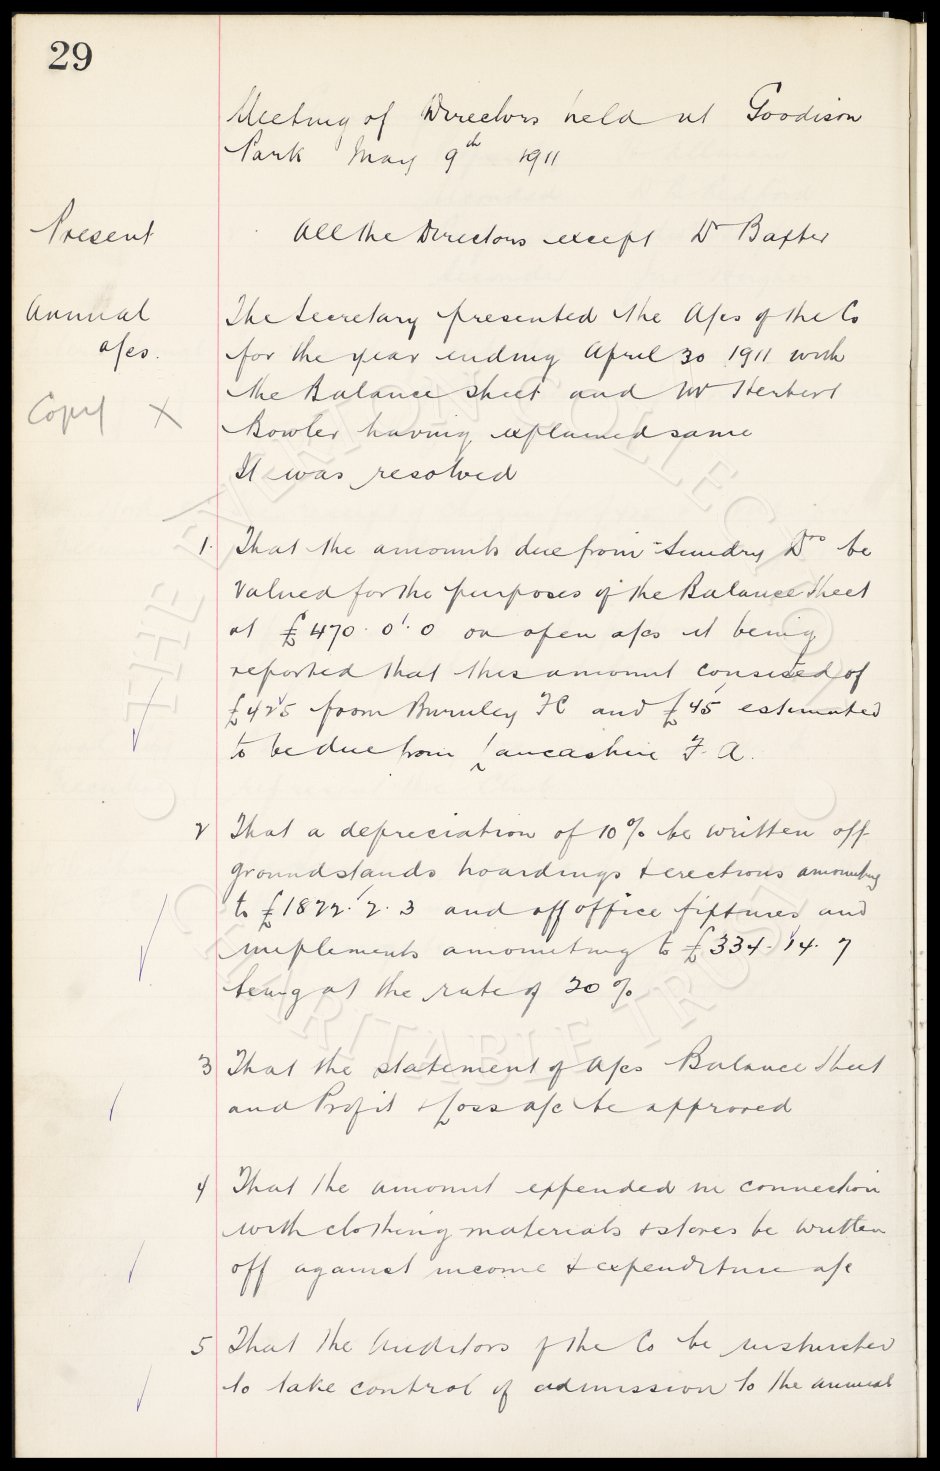 29
Meeting of Directors held at Goodison
Park May 9th 1911
Present
All the Directors except Dr Baxter
Annual
a/cs.
Copy X
The Secretary presented the A/cs of the Co
for the year ending April 30 1911 with
the Balance Sheet and Mr Herbert
Bowler having explained same
It was resolved
1. That the amounts due from Sundry Drs be
valued for the purposes of the Balance Sheet
at £470. 0. 0 on open a/cs it being
reported that this amount consisted of
£425 from Burnley FC and £45 estimated
to be due from Lancashire F. A.
2 That a depreciation of 10% be written off
groundstands hoardings & erections amounting
to £1822. 2. 3 and off office fixtures and
implements amounting to £334. 14. 7
being at the rate of 20%
3 That the statement of A/cs Balance Sheet
and Profit & Loss a/c be approved
4 That the amount expended in connection
with clothing materials & stores be written
off against income & expenditure a/c
5 That the Auditors of the Co be instructed
to take control of admission to the annual
THE EVERTON COLLECTION
CHARITABLE TRUST